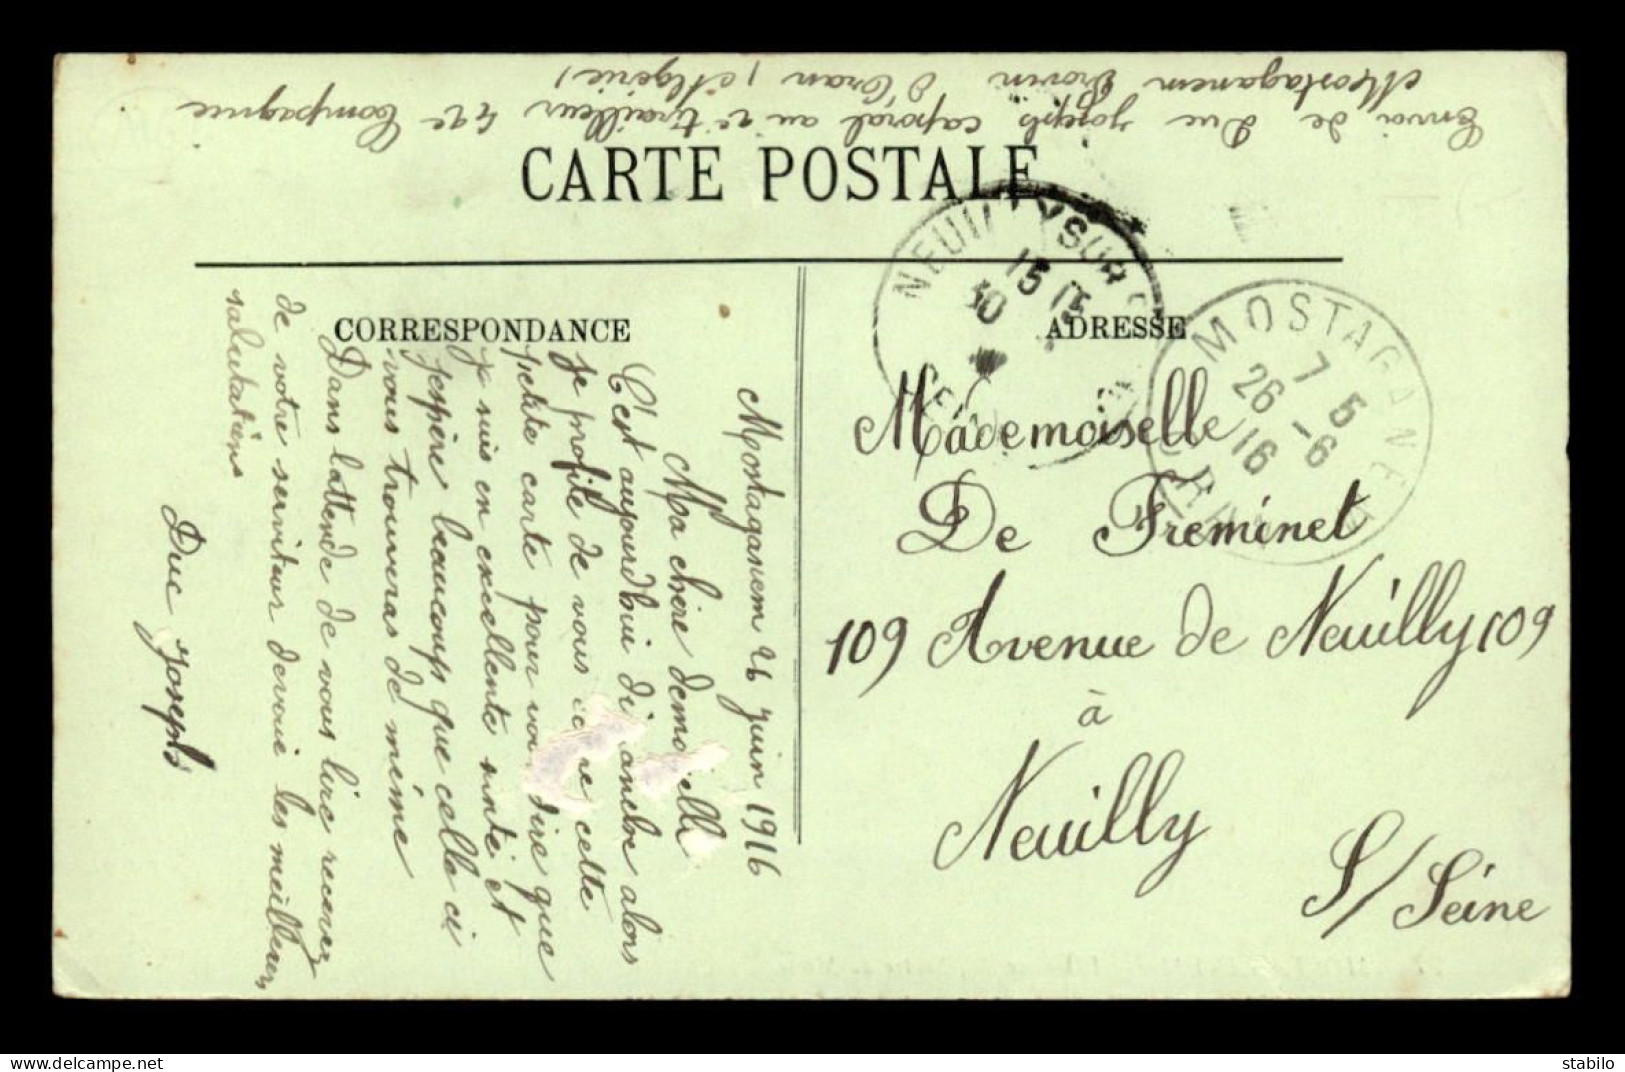 Envoi de Duc Joseph caporal au 2e tirailleur 42e Compagnie
Mostaganem Provin D'Oran (Algérie)
CARTE POSTALE
CORRESPONDANCE
ADRESSE
NEUILLY SUR
15 15
30
MOSTAGANEM
7 5
26 -6
16
ORAN
Mostaganem 26 Juin 1916
Ma chère demoiselle
C'est aujourd'hui dimanche alors
je profite de vous cette
petite carte pour vous dire que
je suis en excellente santé et
j'espère beaucoup que celle ci
vous trouveras de même
Dans lattende de vous lire recevez
de votre serviteur devoué les meilleures
salutations
Duc Joseph
Mademoiselle
De Freminet
109 Avenue de Neuilly 109
à
Neuilly
S/Seine
stabilo
www.delcampe.net